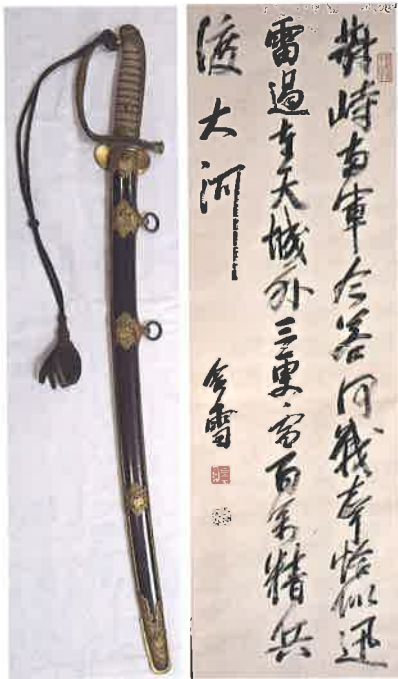 對峙両軍今若何戰声恰似迅
雷過奉天城外三更雪百萬精兵
渡大河
含雪